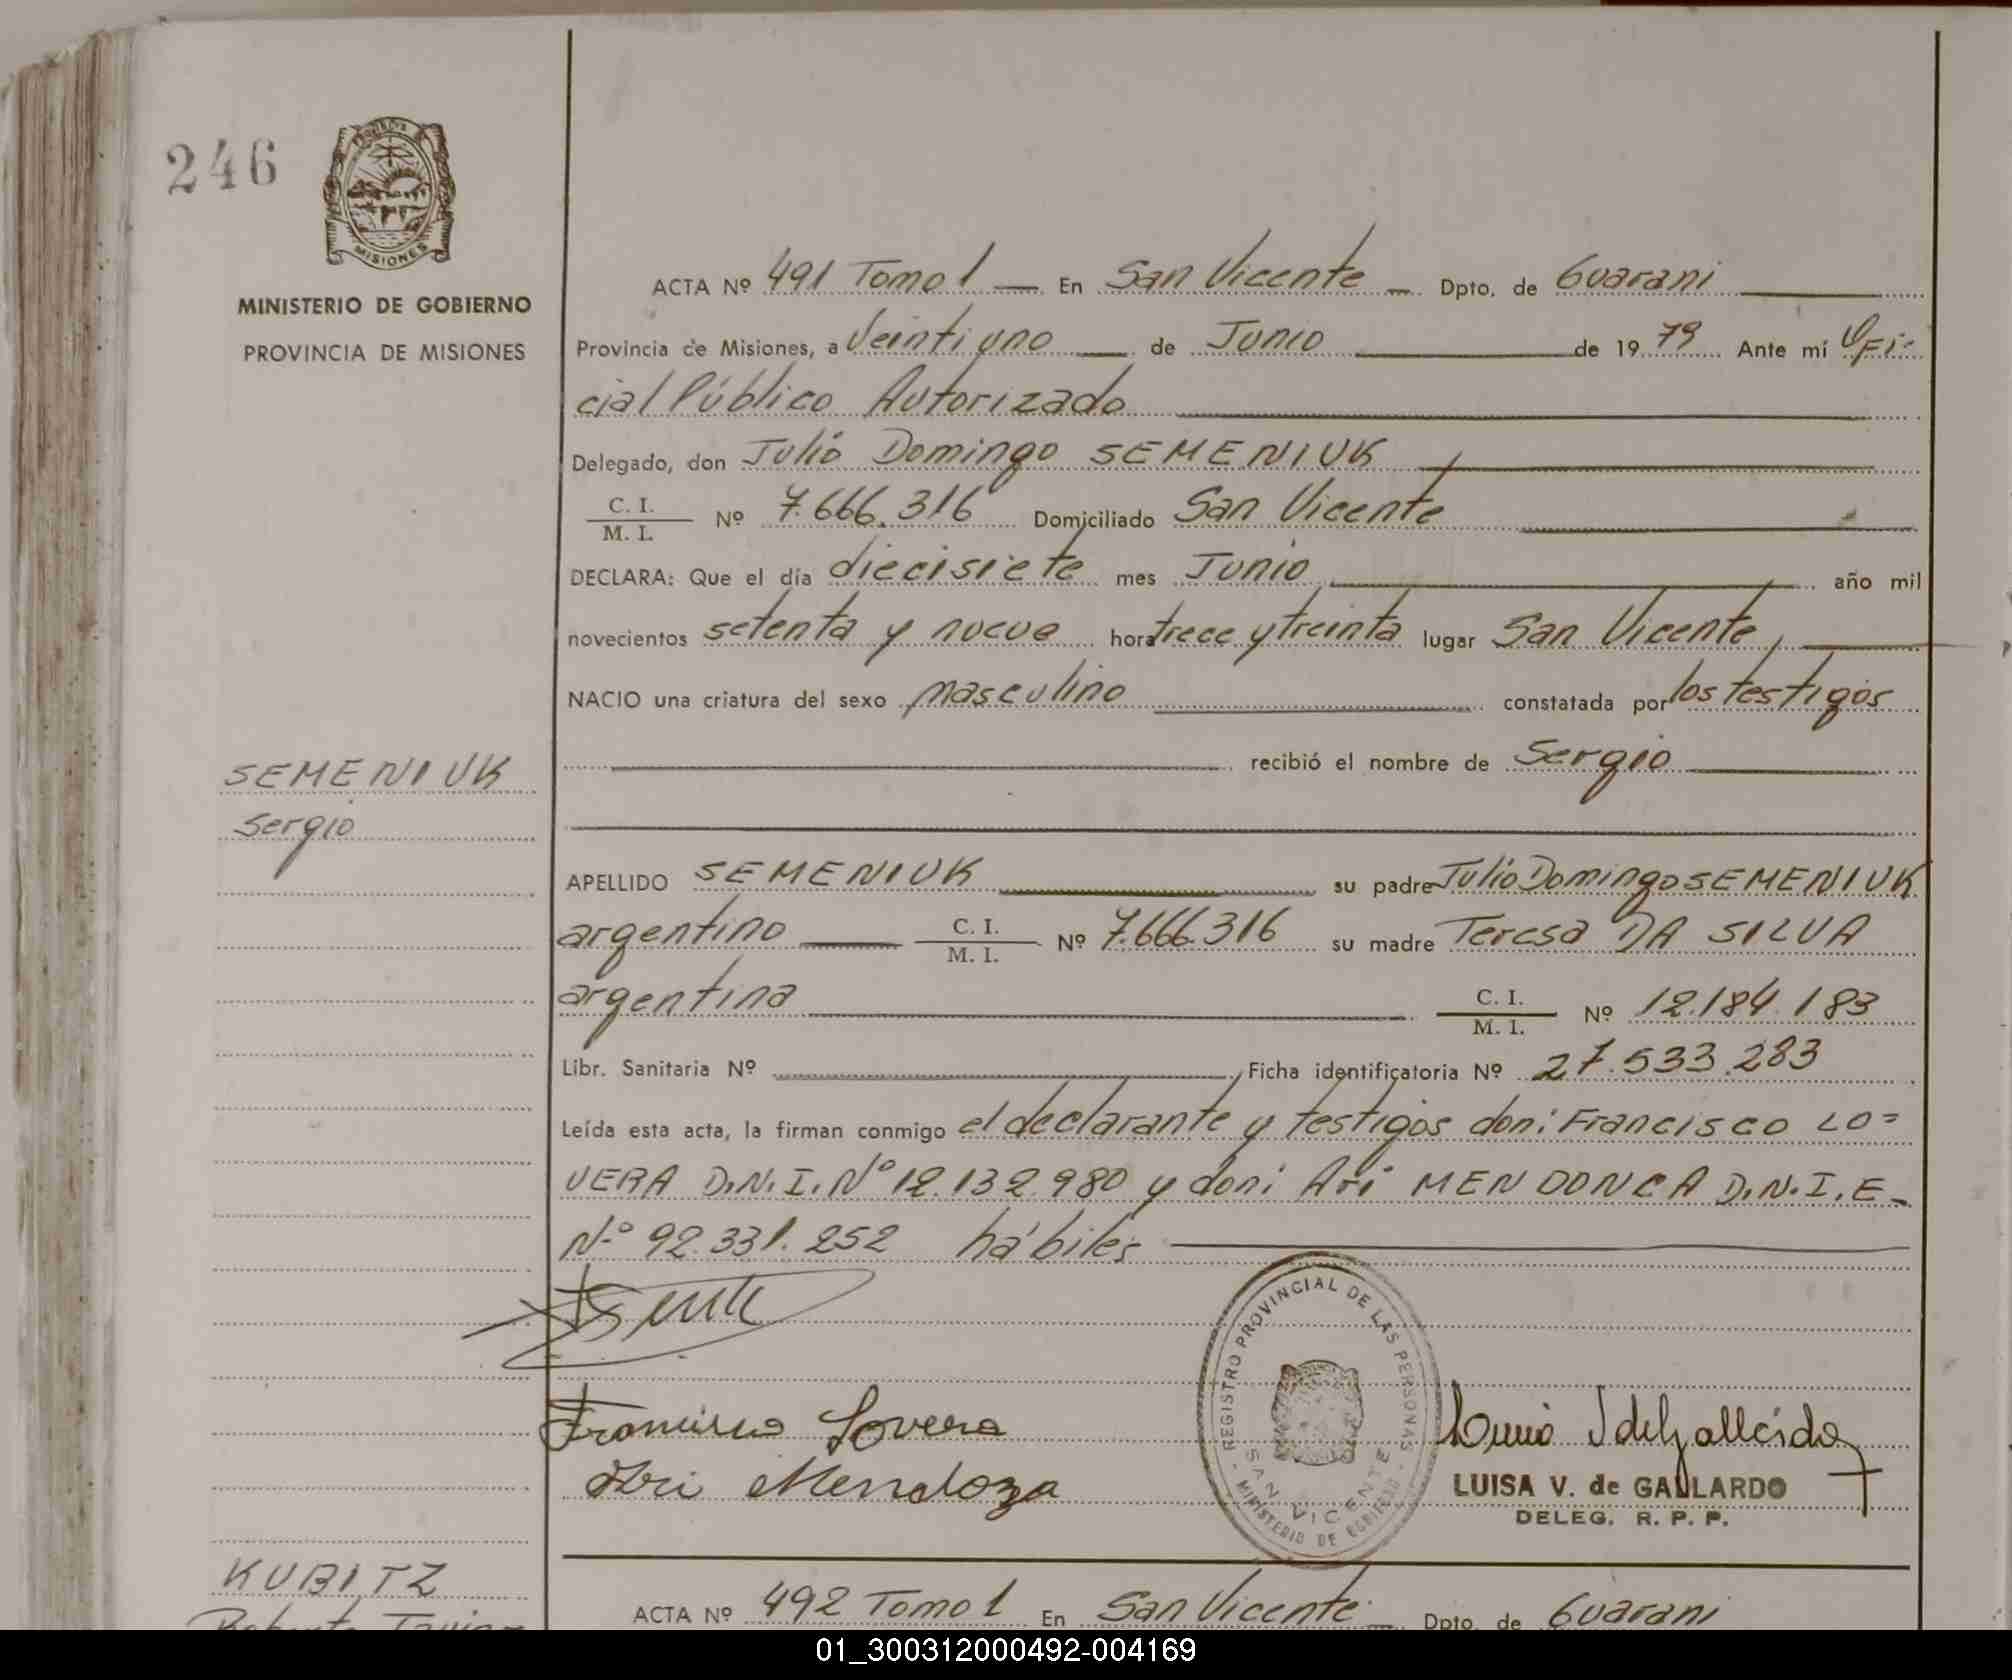 246
MISIONES
MINISTERIO DE GOBIERNO
PROVINCIA DE MISIONES
ACTA Nº 491 Tomo 1 — En San Vicente — Dpto. de Guarani
Provincia de Misiones, a Veintiuno de Junio de 1979 Ante mí Ofi-
cial Público Autorizado
Delegado, don Julio Domingo SEMENIUK
C. I.
M. I.
Nº 7.666.316 Domiciliado San Vicente
DECLARA: Que el día diecisiete mes Junio año mil
novecientos setenta y nueve hora trece y treinta lugar San Vicente,
NACIO una criatura del sexo masculino constatada por los testigos
recibió el nombre de Sergio
SEMENIUK
Sergio
APELLIDO SEMENIUK su padre Julio Domingo SEMENIUK
argentino C. I.
M. I.
Nº 7.666.316 su madre Teresa DA SILVA
argentina C. I.
M. I.
Nº 12.184.183
Libr. Sanitaria Nº Ficha identificatoria Nº 27.533.283
Leída esta acta, la firman conmigo el declarante y testigos don: Francisco LO=
VERA D.N.I. Nº 12.132.980 y don: Ari MENDONCA D.N.I.E-
Nº 92.331.252 hábiles
Francisco Lovera
Ari Mendoza
REGISTRO PROVINCIAL DE LAS PERSONAS
SAN VICENTE
MINISTERIO DE GOBIERNO
LUISA V. de GALLARDO
DELEG. R. P. P.
KUBITZ
Roberto Javier
ACTA Nº 492 Tomo 1 En San Vicente Dpto. de Guarani
01_300312000492-004169